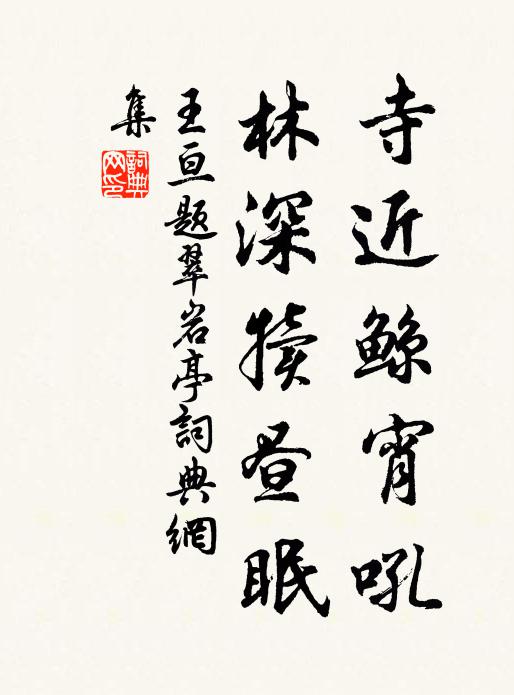 寺近鲸宵吼
林深犊昼眠
王亘题翠岩亭詞典網
集
詞典
网印